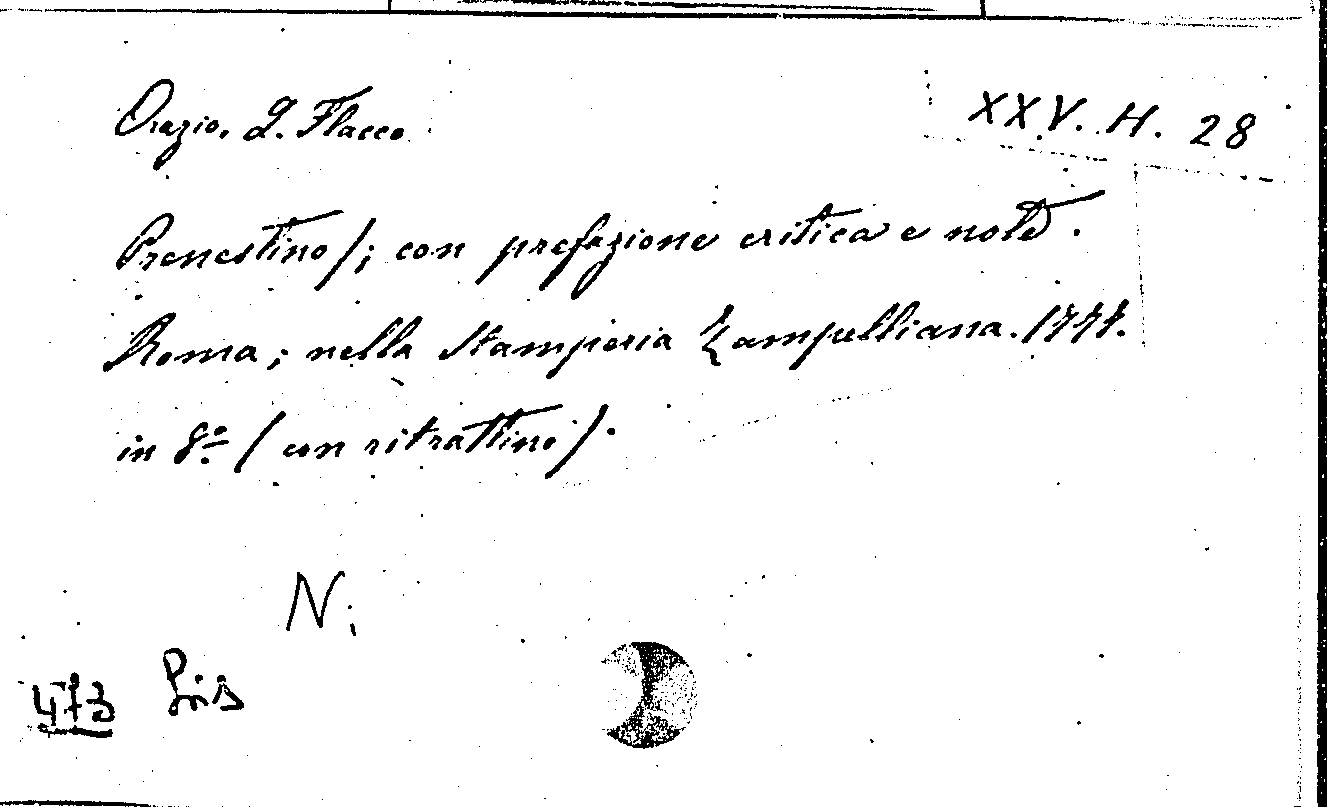 Orazio. Q. Flacco
XXV. H. 28
Prenestino); con prefazione critica e note.
Roma; nella Stamperia Zampelliana. 1777.
in 8º (con ritrattino).
N.
473